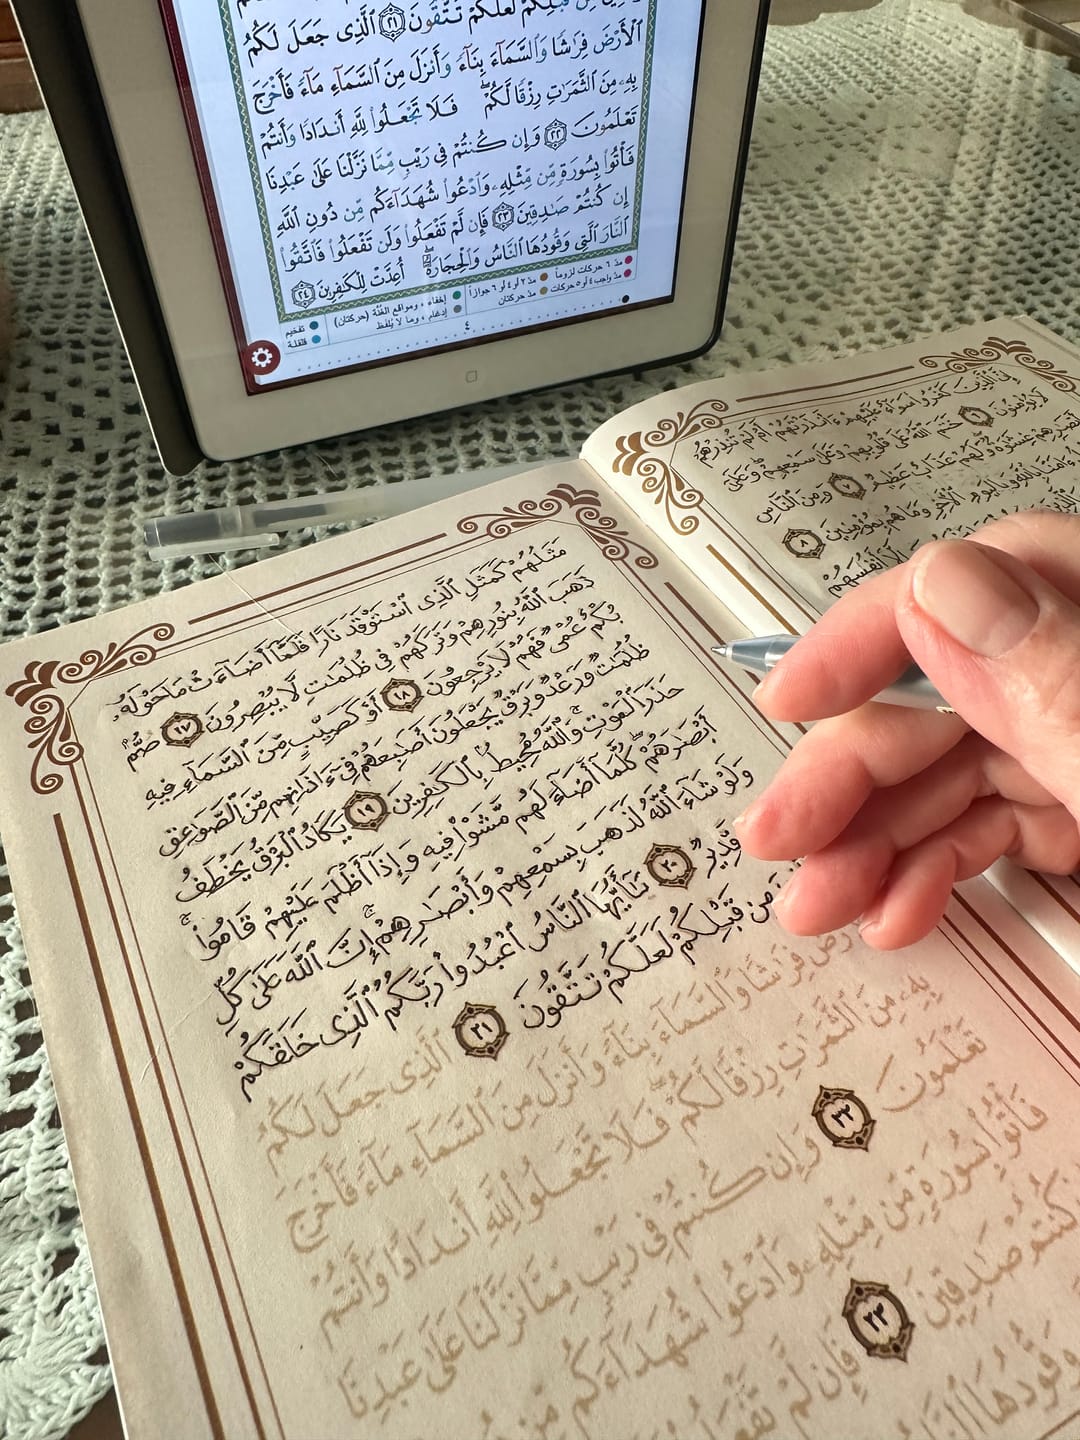 قَبْلِكُمْ لَعَلَّكُمْ تَتَّقُونَ ٢١ ٱلَّذِى جَعَلَ لَكُمُ
ٱلْأَرْضَ فِرَٰشًا وَٱلسَّمَآءَ بِنَآءً وَأَنزَلَ مِنَ ٱلسَّمَآءِ مَآءً فَأَخْرَجَ
بِهِۦ مِنَ ٱلثَّمَرَٰتِ رِزْقًا لَّكُمْ ۖ فَلَا تَجْعَلُوا۟ لِلَّهِ أَندَادًا وَأَنتُمْ
تَعْلَمُونَ ٢٢ وَإِن كُنتُمْ فِى رَيْبٍ مِّمَّا نَزَّلْنَا عَلَىٰ عَبْدِنَا
فَأْتُوا۟ بِسُورَةٍ مِّن مِّثْلِهِۦ وَٱدْعُوا۟ شُهَدَآءَكُم مِّن دُونِ ٱللَّهِ
إِن كُنتُمْ صَٰدِقِينَ ٢٣ فَإِن لَّمْ تَفْعَلُوا۟ وَلَن تَفْعَلُوا۟ فَٱتَّقُوا۟
ٱلنَّارَ ٱلَّتِى وَقُودُهَا ٱلنَّاسُ وَٱلْحِجَارَةُ ۖ أُعِدَّتْ لِلْكَٰفِرِينَ ٢٤
مدّ ٦ حركات لزوماً مدّ ٢ أو ٤ أو ٦ جوازاً إخفاء، ومواقع الغُنَّة (حركتان) تفخيم
مدّ واجب ٤ أو ٥ حركات مدّ حركتان إدغام، وما لا يُلفَظ قلقلة
٤
إِنَّ ٱلَّذِينَ كَفَرُوا۟ سَوَآءٌ عَلَيْهِمْ ءَأَنذَرْتَهُمْ أَمْ لَمْ تُنذِرْهُمْ
لَا يُؤْمِنُونَ ٦ خَتَمَ ٱللَّهُ عَلَىٰ قُلُوبِهِمْ وَعَلَىٰ سَمْعِهِمْ ۖ وَعَلَىٰٓ
أَبْصَٰرِهِمْ غِشَٰوَةٌ وَلَهُمْ عَذَابٌ عَظِيمٌ ٧ وَمِنَ ٱلنَّاسِ
ءَامَنَّا بِٱللَّهِ وَبِٱلْيَوْمِ ٱلْءَاخِرِ وَمَا هُم بِمُؤْمِنِينَ ٨
إِلَّآ أَنفُسَهُمْ
مَثَلُهُمْ كَمَثَلِ ٱلَّذِى ٱسْتَوْقَدَ نَارًا فَلَمَّآ أَضَآءَتْ مَا حَوْلَهُۥ
ذَهَبَ ٱللَّهُ بِنُورِهِمْ وَتَرَكَهُمْ فِى ظُلُمَٰتٍ لَّا يُبْصِرُونَ ١٧ صُمٌّۢ
بُكْمٌ عُمْىٌ فَهُمْ لَا يَرْجِعُونَ ١٨ أَوْ كَصَيِّبٍ مِّنَ ٱلسَّمَآءِ فِيهِ
ظُلُمَٰتٌ وَرَعْدٌ وَبَرْقٌ يَجْعَلُونَ أَصَٰبِعَهُمْ فِىٓ ءَاذَانِهِم مِّنَ ٱلصَّوَٰعِقِ
حَذَرَ ٱلْمَوْتِ ۚ وَٱللَّهُ مُحِيطٌۢ بِٱلْكَٰفِرِينَ ١٩ يَكَادُ ٱلْبَرْقُ يَخْطَفُ
أَبْصَٰرَهُمْ ۖ كُلَّمَآ أَضَآءَ لَهُم مَّشَوْا۟ فِيهِ وَإِذَآ أَظْلَمَ عَلَيْهِمْ قَامُوا۟ ۚ
وَلَوْ شَآءَ ٱللَّهُ لَذَهَبَ بِسَمْعِهِمْ وَأَبْصَٰرِهِمْ ۚ إِنَّ ٱللَّهَ عَلَىٰ كُلِّ
قَدِيرٌ ٢٠ يَٰٓأَيُّهَا ٱلنَّاسُ ٱعْبُدُوا۟ رَبَّكُمُ ٱلَّذِى خَلَقَكُمْ
مِن قَبْلِكُمْ لَعَلَّكُمْ تَتَّقُونَ ٢١ ٱلَّذِى جَعَلَ لَكُمُ
فِرَٰشًا وَٱلسَّمَآءَ بِنَآءً وَأَنزَلَ مِنَ ٱلسَّمَآءِ مَآءً فَأَخْرَجَ
بِهِۦ مِنَ ٱلثَّمَرَٰتِ رِزْقًا لَّكُمْ ۖ فَلَا تَجْعَلُوا۟ لِلَّهِ أَندَادًا وَأَنتُمْ
تَعْلَمُونَ ٢٢ وَإِن كُنتُمْ فِى رَيْبٍ مِّمَّا نَزَّلْنَا عَلَىٰ عَبْدِنَا
فَأْتُوا۟ بِسُورَةٍ مِّن مِّثْلِهِۦ وَٱدْعُوا۟ شُهَدَآءَكُم مِّن
كُنتُمْ صَٰدِقِينَ ٢٣ فَإِن لَّمْ
وَقُودُهَا